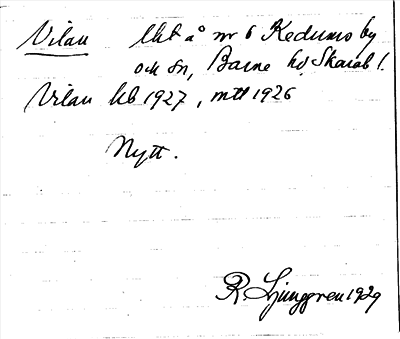 Vilan lht å nr 6 Kedums by
och sn, Barne hd, Skarab l.
Vilan kb 1927, mtl 1926
Nytt.
R. Ljunggren 1929